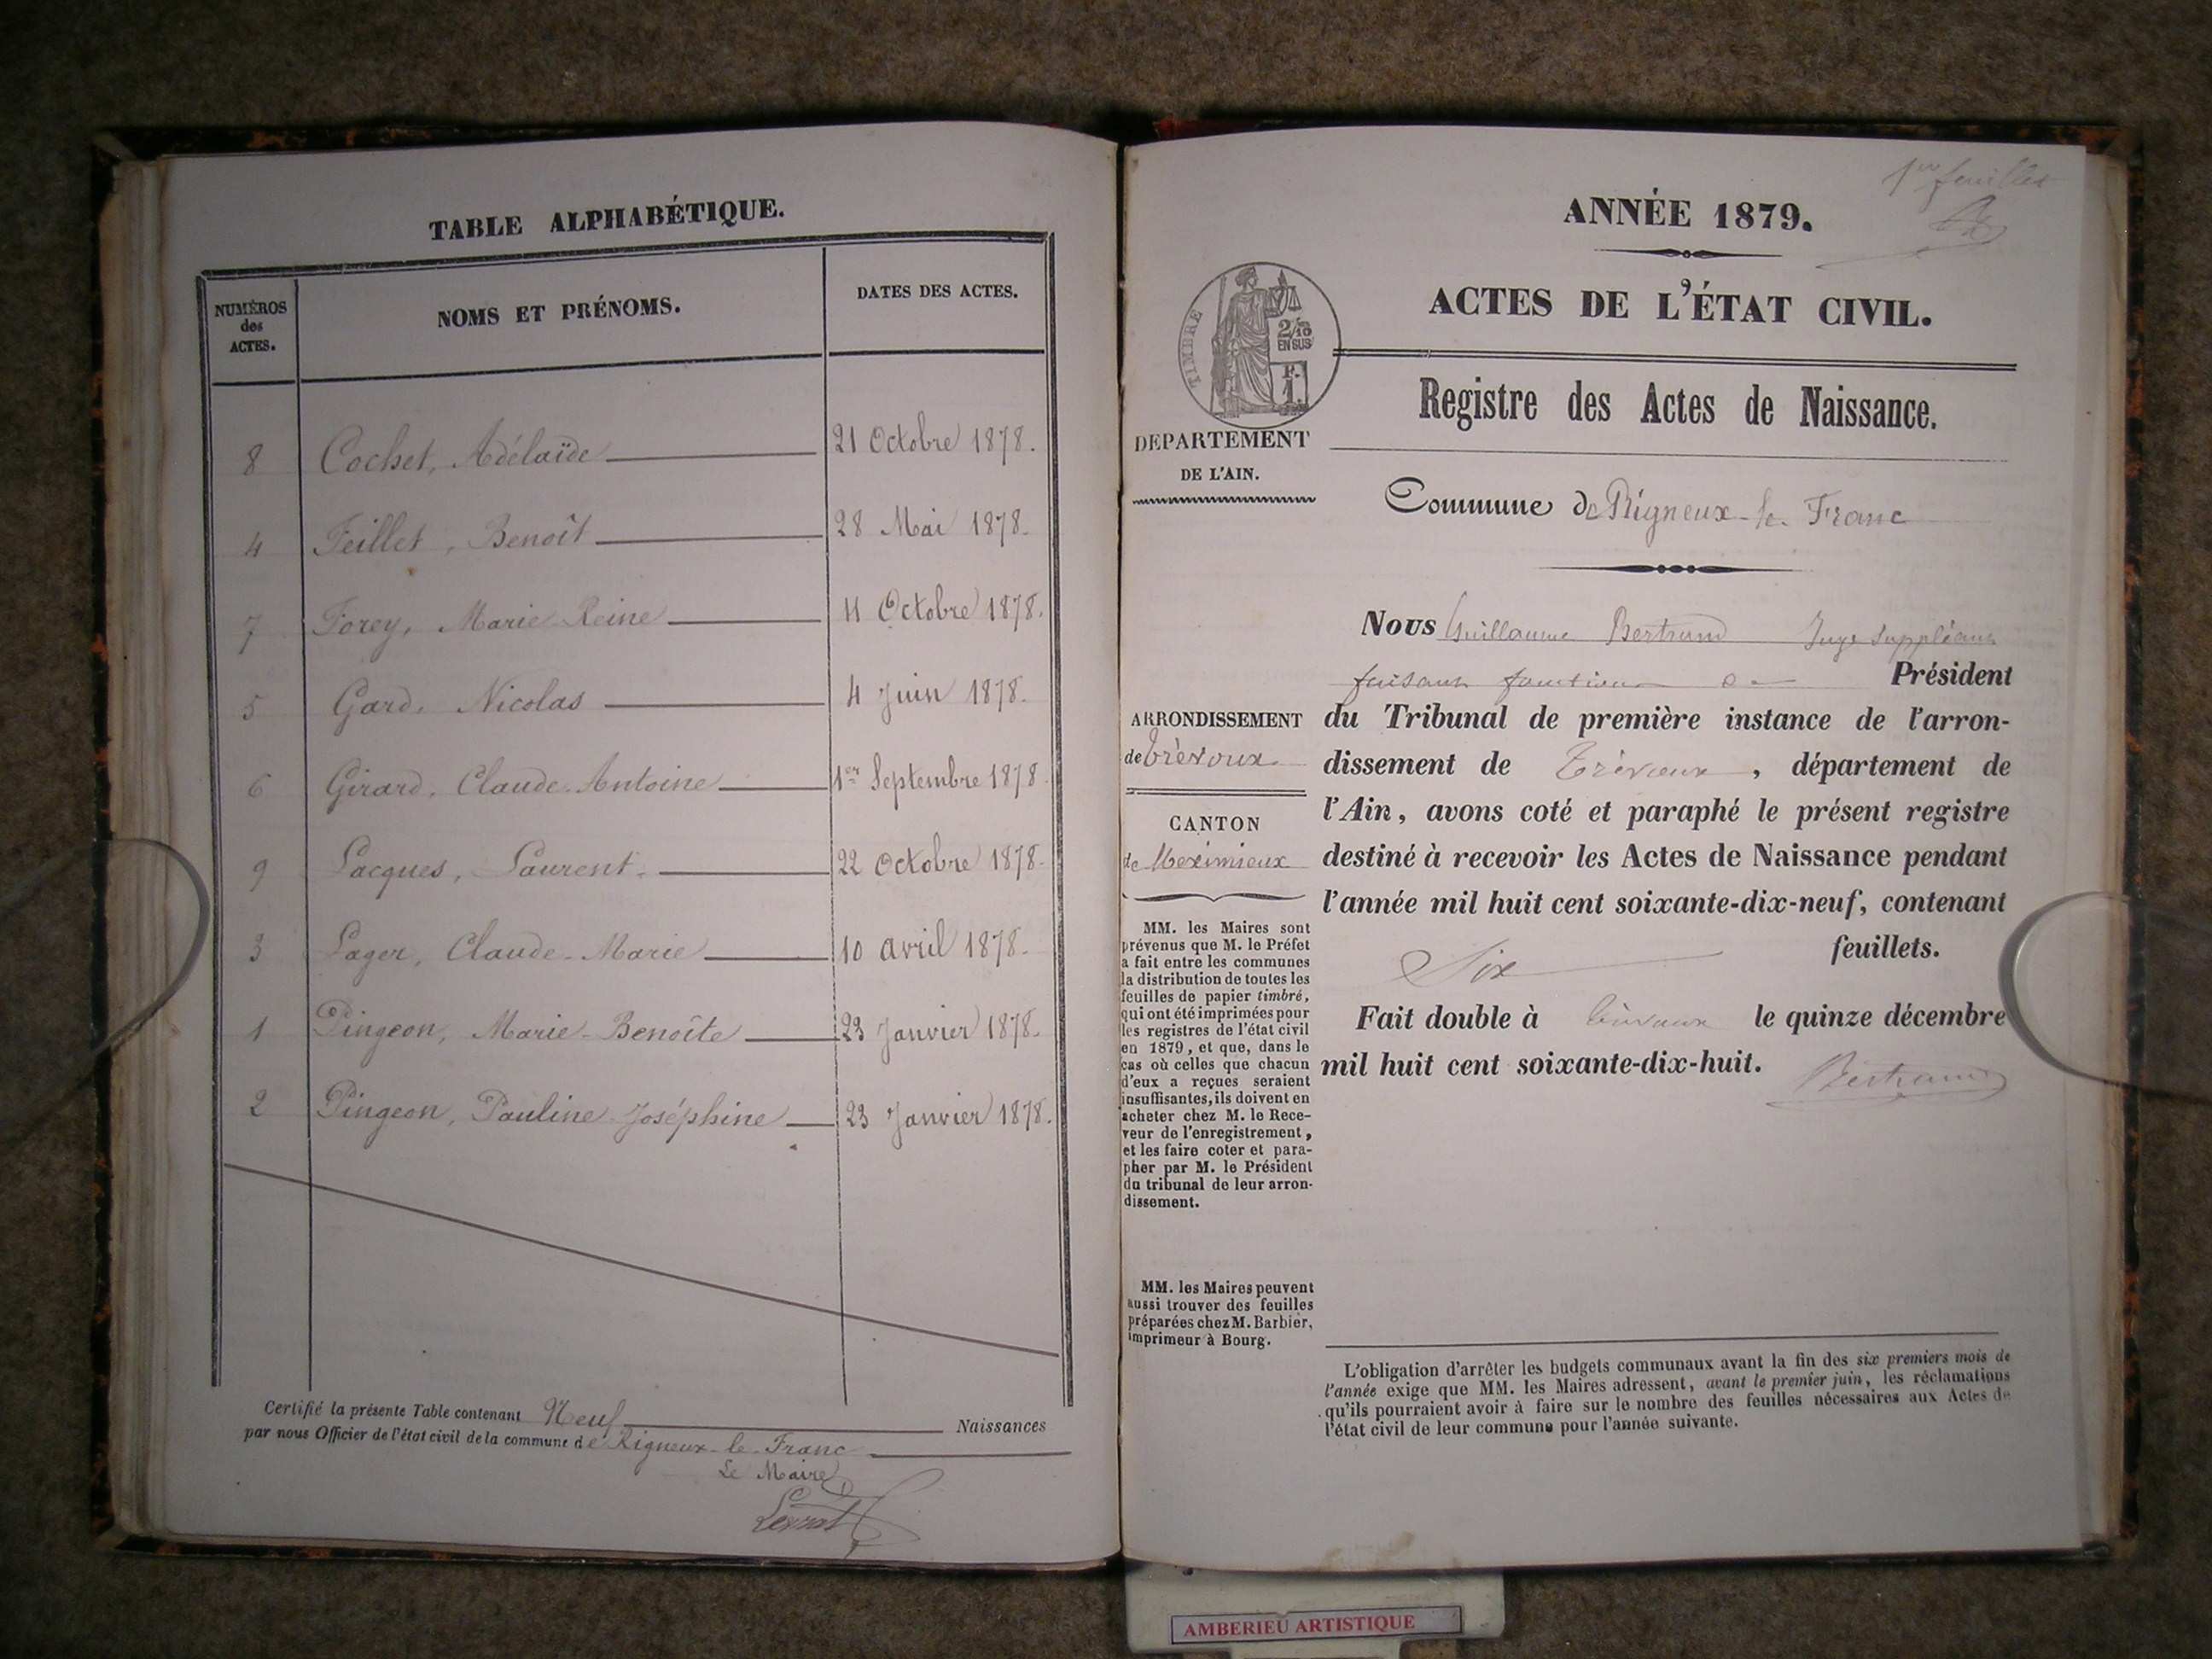 TABLE ALPHABÉTIQUE.
NUMÉROS
des
ACTES.
NOMS ET PRÉNOMS.
DATES DES ACTES.
8 Cochet, Adélaïde 21 Octobre 1878.
4 Feillet, Benoît 28 Mai 1878.
7 Forey, Marie Reine 11 Octobre 1878.
5 Gard, Nicolas 4 Juin 1878.
6 Girard, Claude-Antoine 1er Septembre 1878
9 Lacques, Laurent. 22 Octobre 1878.
3 Lager, Claude-Marie 10 avril 1878.
1 Pingeon, Marie-Benoîte 23 Janvier 1878.
2 Pingeon, Pauline Joséphine 23 Janvier 1878.
Certifié la présente Table contenant Neuf Naissances
par nous Officier de l'état civil de la commune de Rigneux-le-Franc
Le Maire
1er feuillet
ANNÉE 1879.
ACTES DE L'ÉTAT CIVIL.
TIMBRE
2/10
EN SUS
F.
1.
Registre des Actes de Naissance.
DEPARTEMENT
DE L'AIN.
Commune de Rigneux-le-Franc
ARRONDISSEMENT
de Trévoux
CANTON
de Meximieux
MM. les Maires sont
prévenus que M. le Préfet
a fait entre les communes
la distribution de toutes les
feuilles de papier timbré,
qui ont été imprimées pour
les registres de l'état civil
en 1879, et que, dans le
cas où celles que chacun
d'eux a reçues seraient
insuffisantes, ils doivent en
acheter chez M. le Rece-
veur de l'enregistrement,
et les faire coter et para-
pher par M. le Président
du tribunal de leur arron-
dissement.
MM. les Maires peuvent
aussi trouver des feuilles
préparées chez M. Barbier,
imprimeur à Bourg.
Nous Guillaume Bertrand Juge Suppléant
faisant fonction de Président
du Tribunal de première instance de l'arron-
dissement de Trévoux, département de
l'Ain, avons coté et paraphé le présent registre
destiné à recevoir les Actes de Naissance pendant
l'année mil huit cent soixante-dix-neuf, contenant
Six feuillets.
Fait double à Trévoux le quinze décembre
mil huit cent soixante-dix-huit.
Bertrand
L'obligation d'arrêter les budgets communaux avant la fin des six premiers mois de
l'année exige que MM. les Maires adressent, avant le premier juin, les réclamations
qu'ils pourraient avoir à faire sur le nombre des feuilles nécessaires aux Actes de
l'état civil de leur commune pour l'année suivante.
AMBERIEU ARTISTIQUE